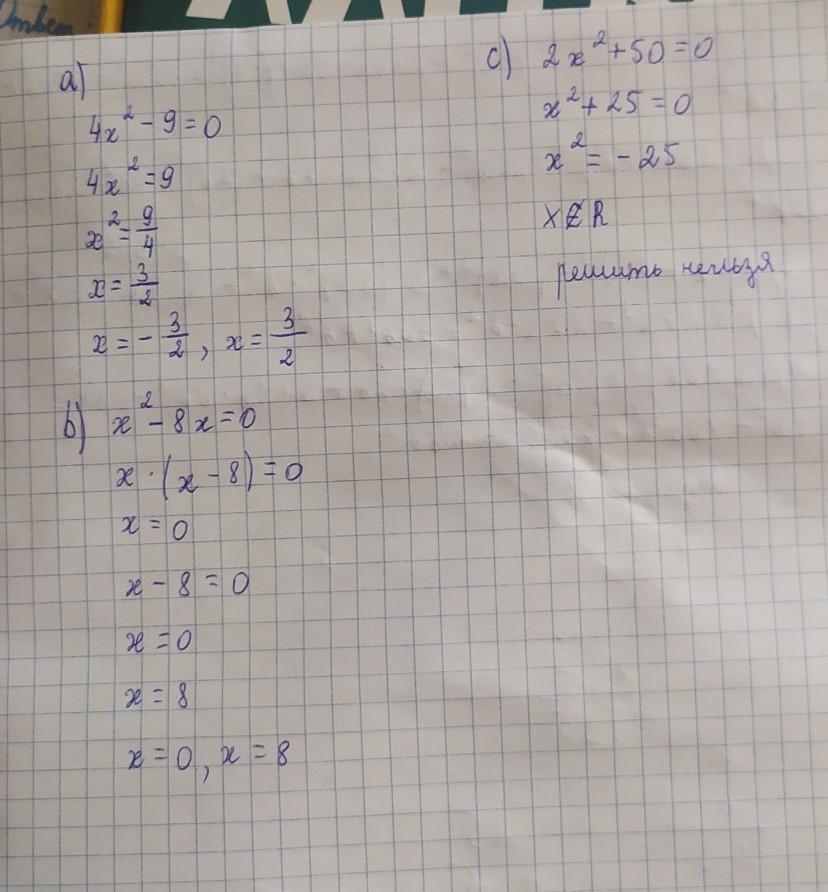 Ответ
a)
4x² - 9 = 0
4x² = 9
x² = 9/4
x = 3/2
x = - 3/2 , x = 3/2
b) x² - 8x = 0
x · (x - 8) = 0
x = 0
x - 8 = 0
x = 0
x = 8
x = 0, x = 8
c) 2x² + 50 = 0
x² + 25 = 0
x² = - 25
x ∉ R
решить нельзя